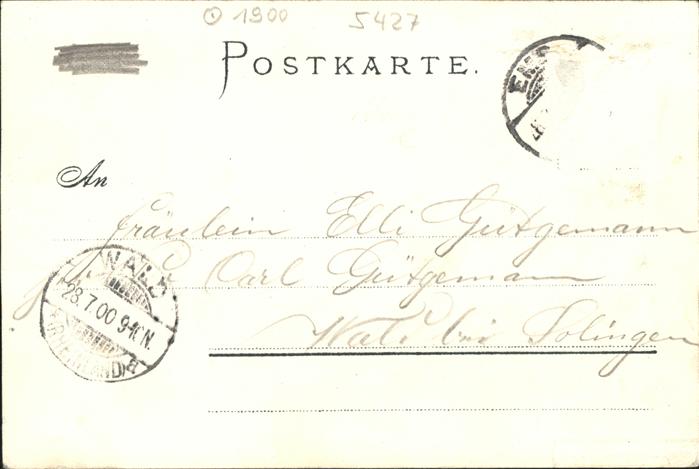 1900 5427
POSTKARTE.
EMS
An
Fräulein Elli Gütgemann
Carl Gütgemann
Wald bei Solingen
WALD
28.7.00 9-10N.
(RHEINLAND)